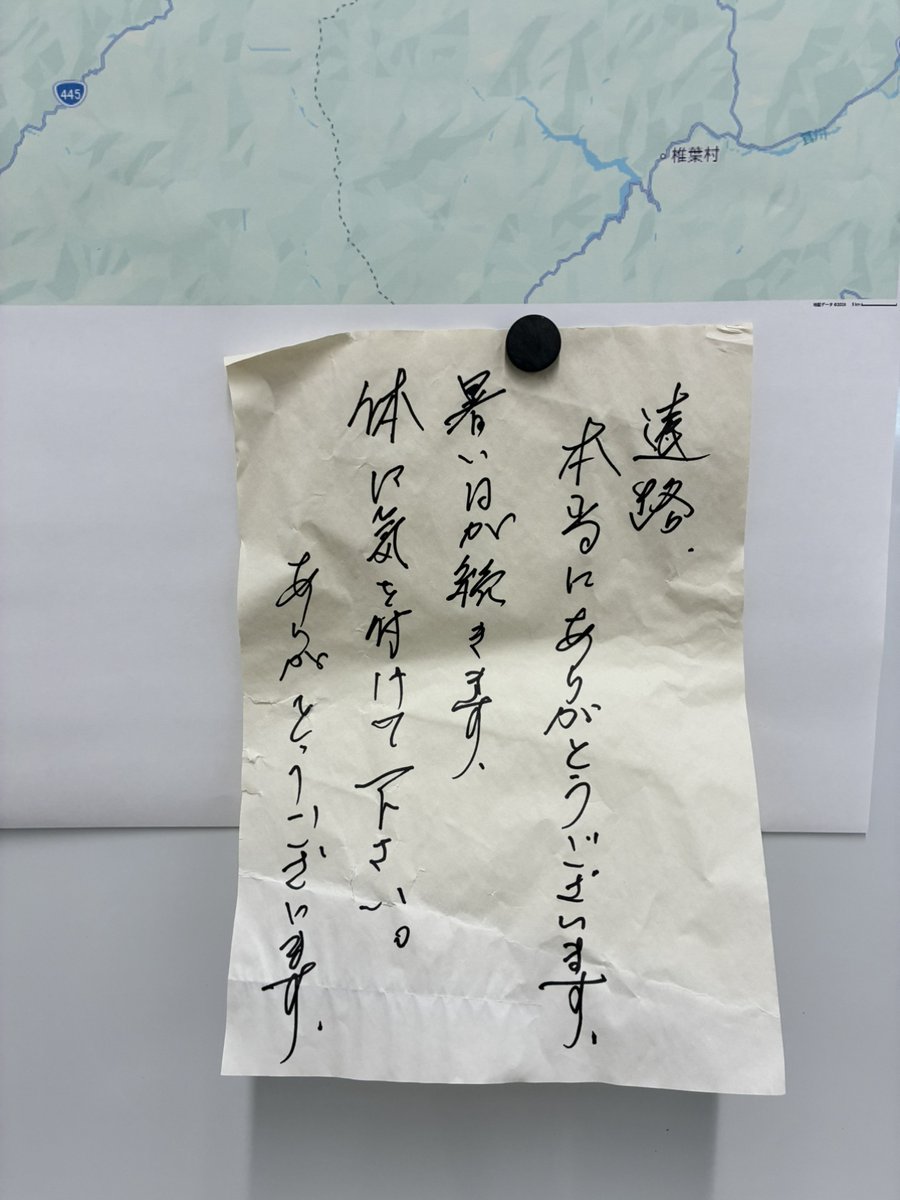 445
椎葉村
耳川
地図データ ©2026 5 km
遠路.
本当にありがとうございます.
暑い日が続きます.
体に気を付けて下さい。
ありがとうございます.